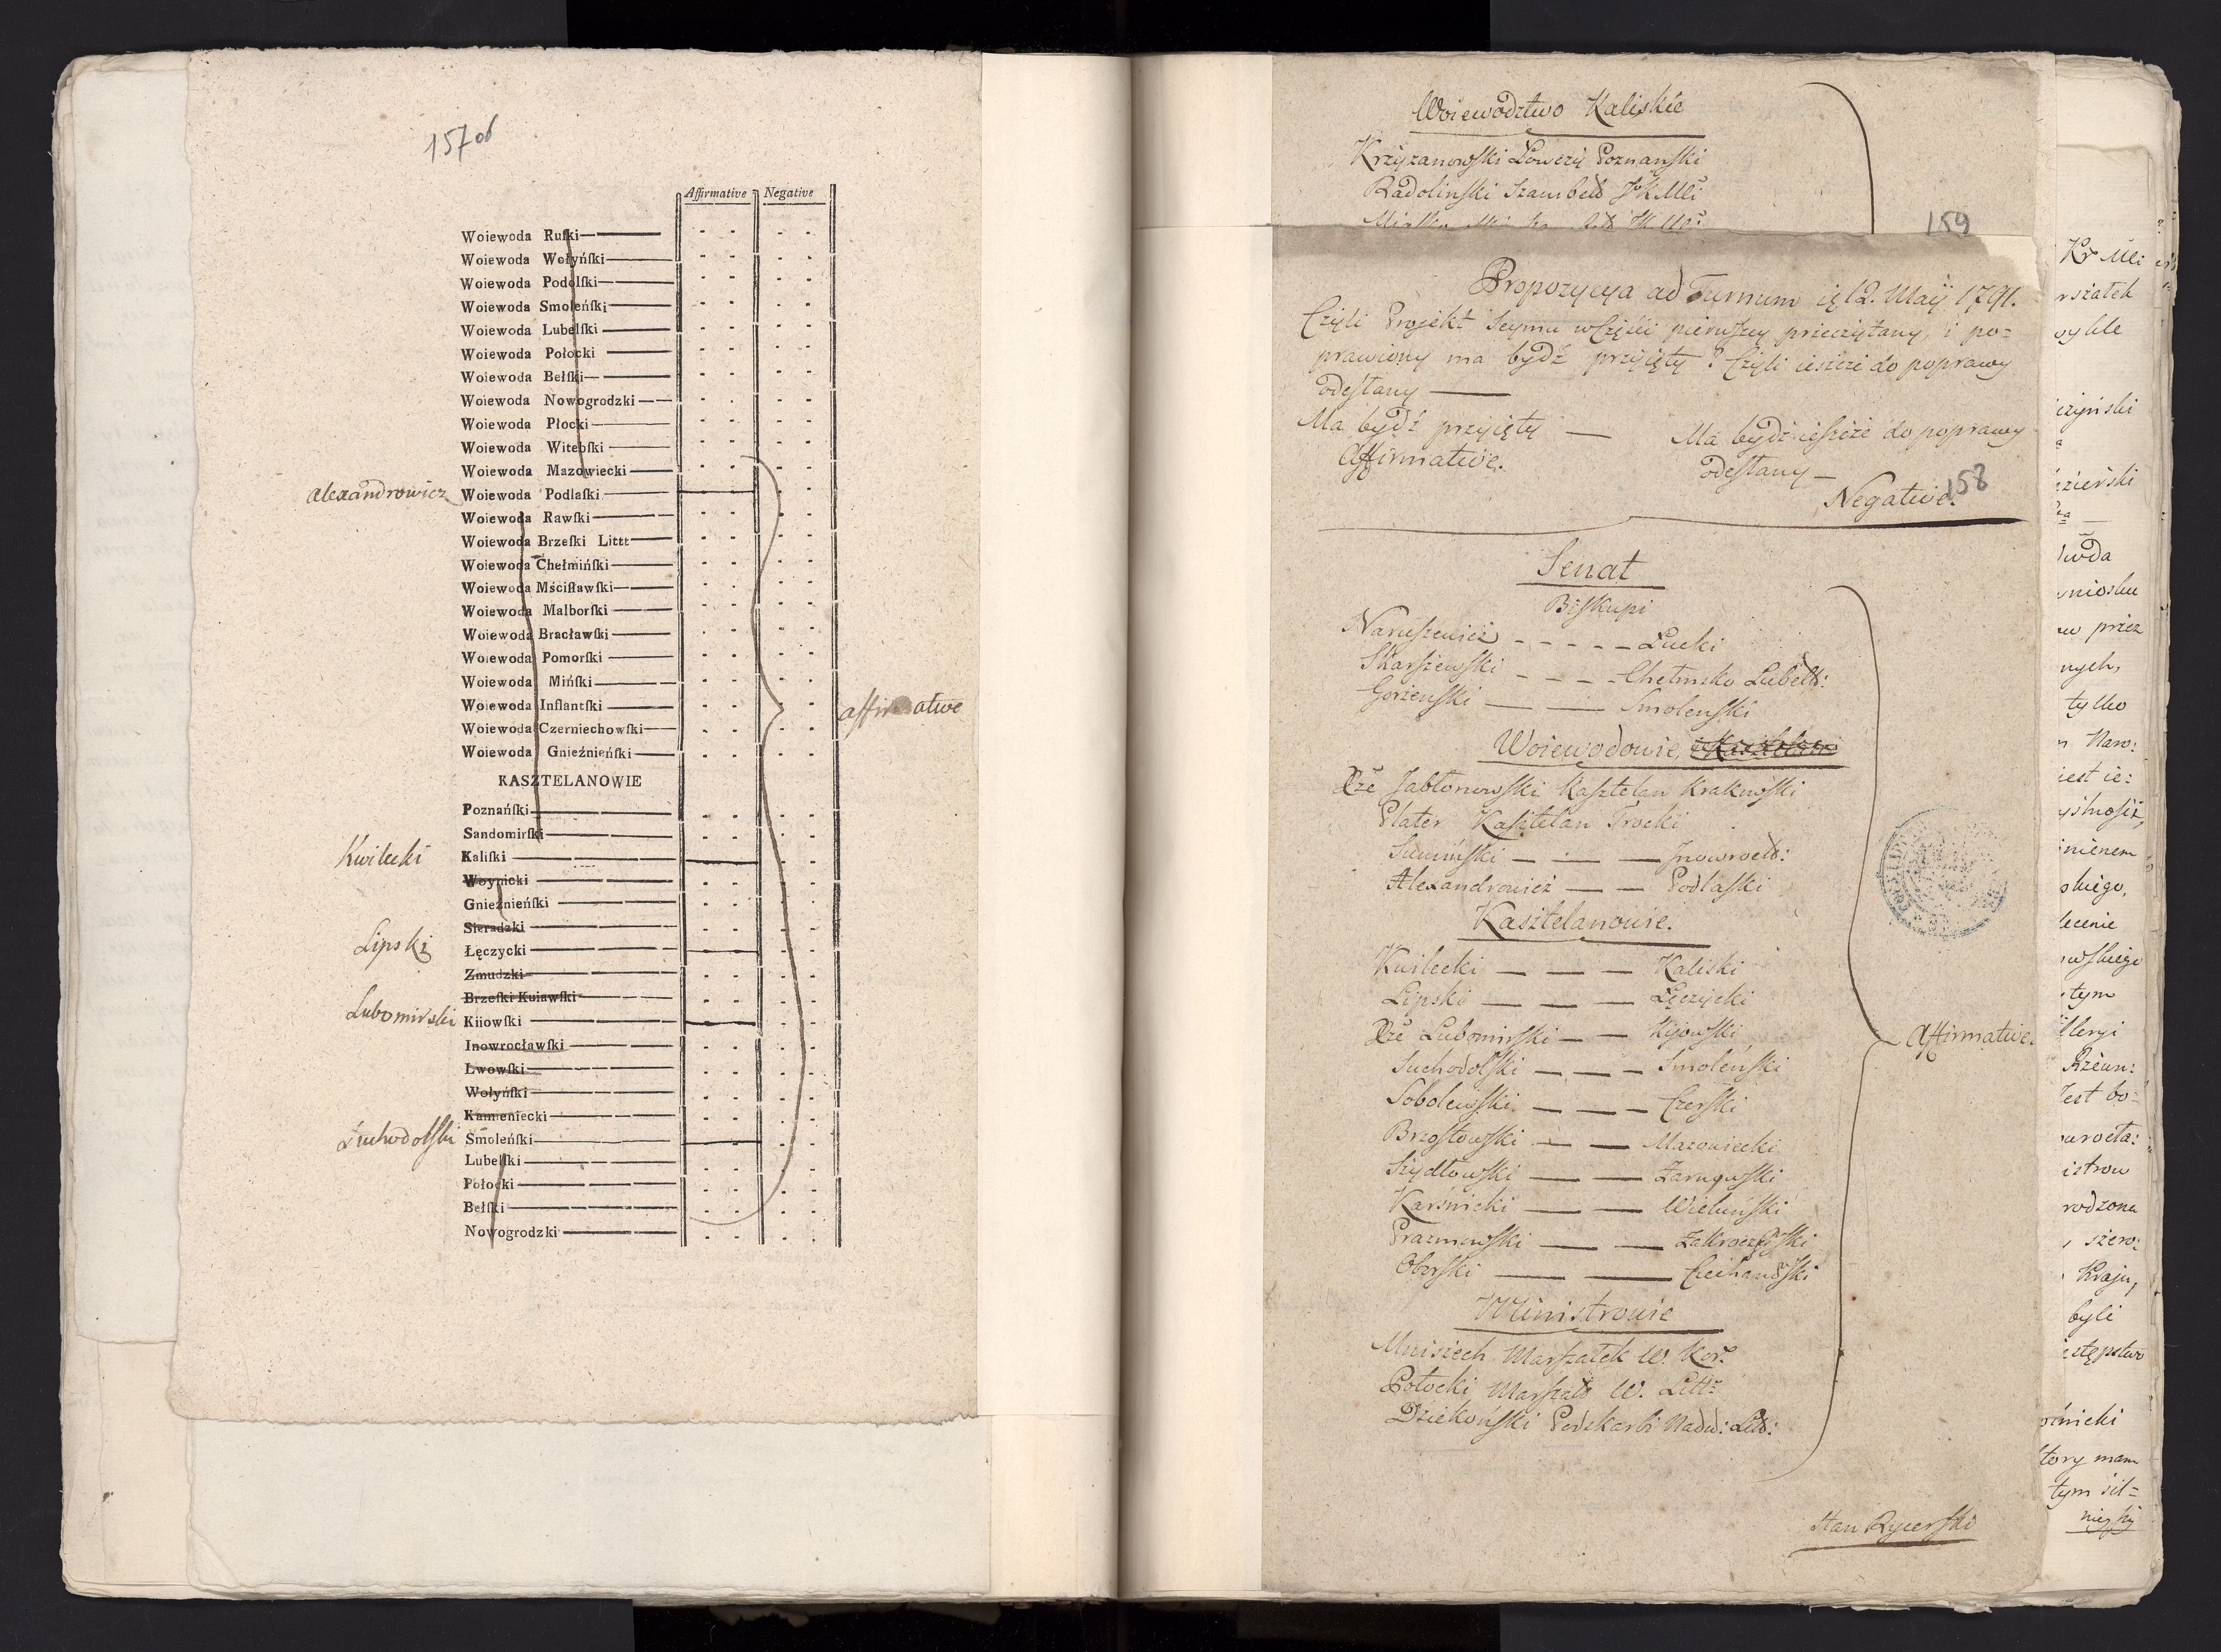 157 od
Affirmative Negative
Woiewoda Ruſki
Woiewoda Wołyńſki
Woiewoda Podolſki
Woiewoda Smoleńſki
Woiewoda Lubelſki
Woiewoda Połocki
Woiewoda Bełſki
Woiewoda Nowogrodzki
Woiewoda Płocki
Woiewoda Witebſki
Woiewoda Mazowiecki
Alexandrowicz Woiewoda Podlaſki
Woiewoda Rawſki
Woiewoda Brzeſki Littt
Woiewoda Chełmińſki
Woiewoda Mściſławſki
Woiewoda Malborſki
Woiewoda Bracławſki
Woiewoda Pomorſki
Woiewoda Mińſki
Woiewoda Inflantſki
affirmative
Woiewoda Czerniechowſki
Woiewoda Gnieźnieńſki
KASZTELANOWIE
Poznańſki
Sandomirſki
Kwilecki Kaliſki
Woynicki
Gnieźnieńſki
Sieradzki
Lipski Łęczycki
Zmudzki
Brzeſki Kuiawſki
Lubomirski Kiiowſki
Inowrocławſki
Lwowſki
Wołyńſki
Kamieniecki
Suchodolſki Smoleńſki
Lubelſki
Połocki
Bełſki
Nowogrodzki
Woiewodztwo Kaliskie
Krzyżanowſki Łowczy Poznanſki
Radolinſki Szambel: JKMci
159
Propozycya ad Turnum 12. Maÿ 1791.
Czyli Projekt Seymu w Części pierwſzey przeczytany, i po=
prawiony ma bydź przyięty? Czyli ieszcze do poprawy
odeſłany
Ma bydź przyięty — Ma bydź ieſzcze do poprawy
Affirmative. odeſłany —
158
Negative.
Senat
Biſkupi
Naruſzewicz - - - - - Łucki
Skarſzewſki - - - - Chełmsko Lubels:
Gorzenſki — — Smolenſki
Woiewodowie,
Xże Jabłonowſki Kaſztelan Krakowſki
Plater Kaſztelan Trocki
Sumińſki — — — Jnowrocł:
Alexandrowicz — — Podlaſki
Kasztelanowie.
Kwilecki — — — Kaliski
Lipski — — — Łęczycki
Xże Lubomirſki — — Kijowſki
Affirmative.
Suchodolſki — — — Smoleńſki
Sobolewſki — — — Czerſki
Brzoſtowſki — — Mazowiecki
Szydłowſki — — Żarnowſki
Karśnicki — — Wieluńſki
Prazmowſki — — Zakroczymſki
Oborſki — — Ciechanowſki
Ministrowie
Mniszech Marſzałek W. Kor:
Potocki Marſzałek W. Litt:
Dziekońſki Podskarbi Nadw: Litt:
Stan Rycerſki
Kr Mci
rszałek
wſkiego
tym
tylko
byli
Kraju,
rodzona
tory mam